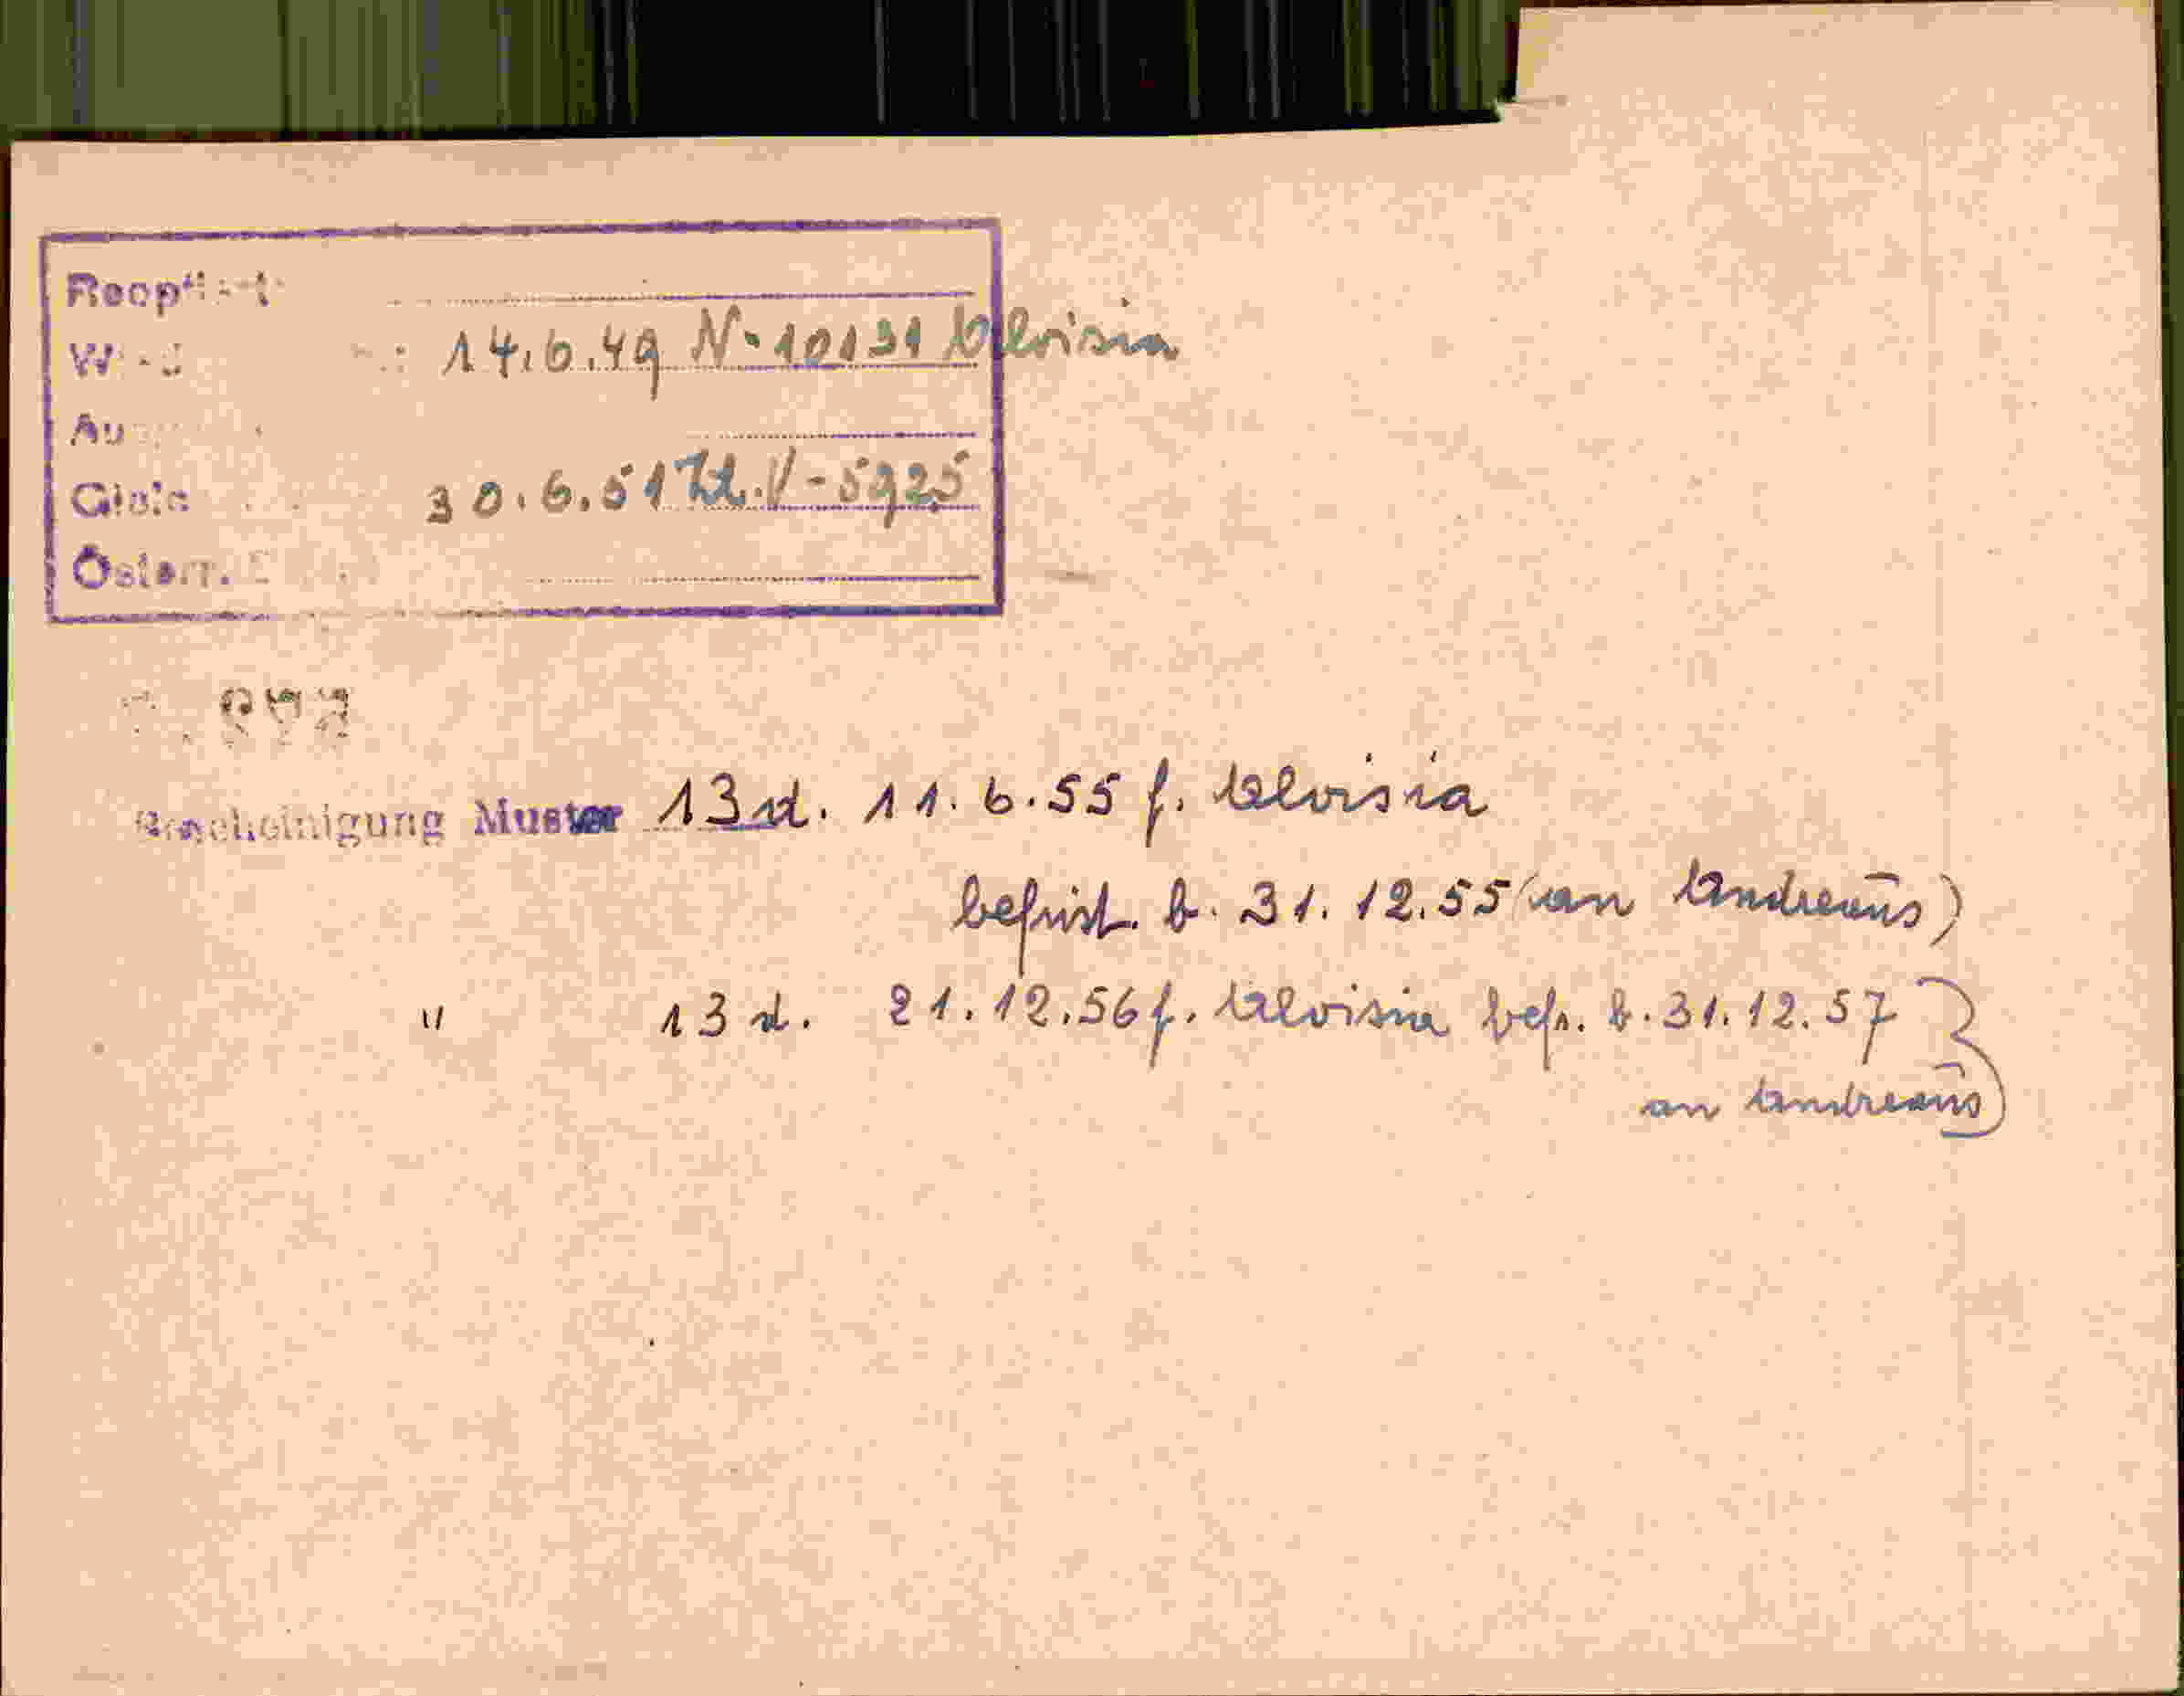 14.6.49 N. 10131 Aloisia
30.6.51 Zl. V-5925
Österr.
Bescheinigung Muster 13 d. 11.6.55 f. Aloisia
befrist. b. 31.12.55 (an Andreaūs)
" 13 d. 21.12.56 f. Aloisia befr. b. 31.12.57
an Andreaūs)